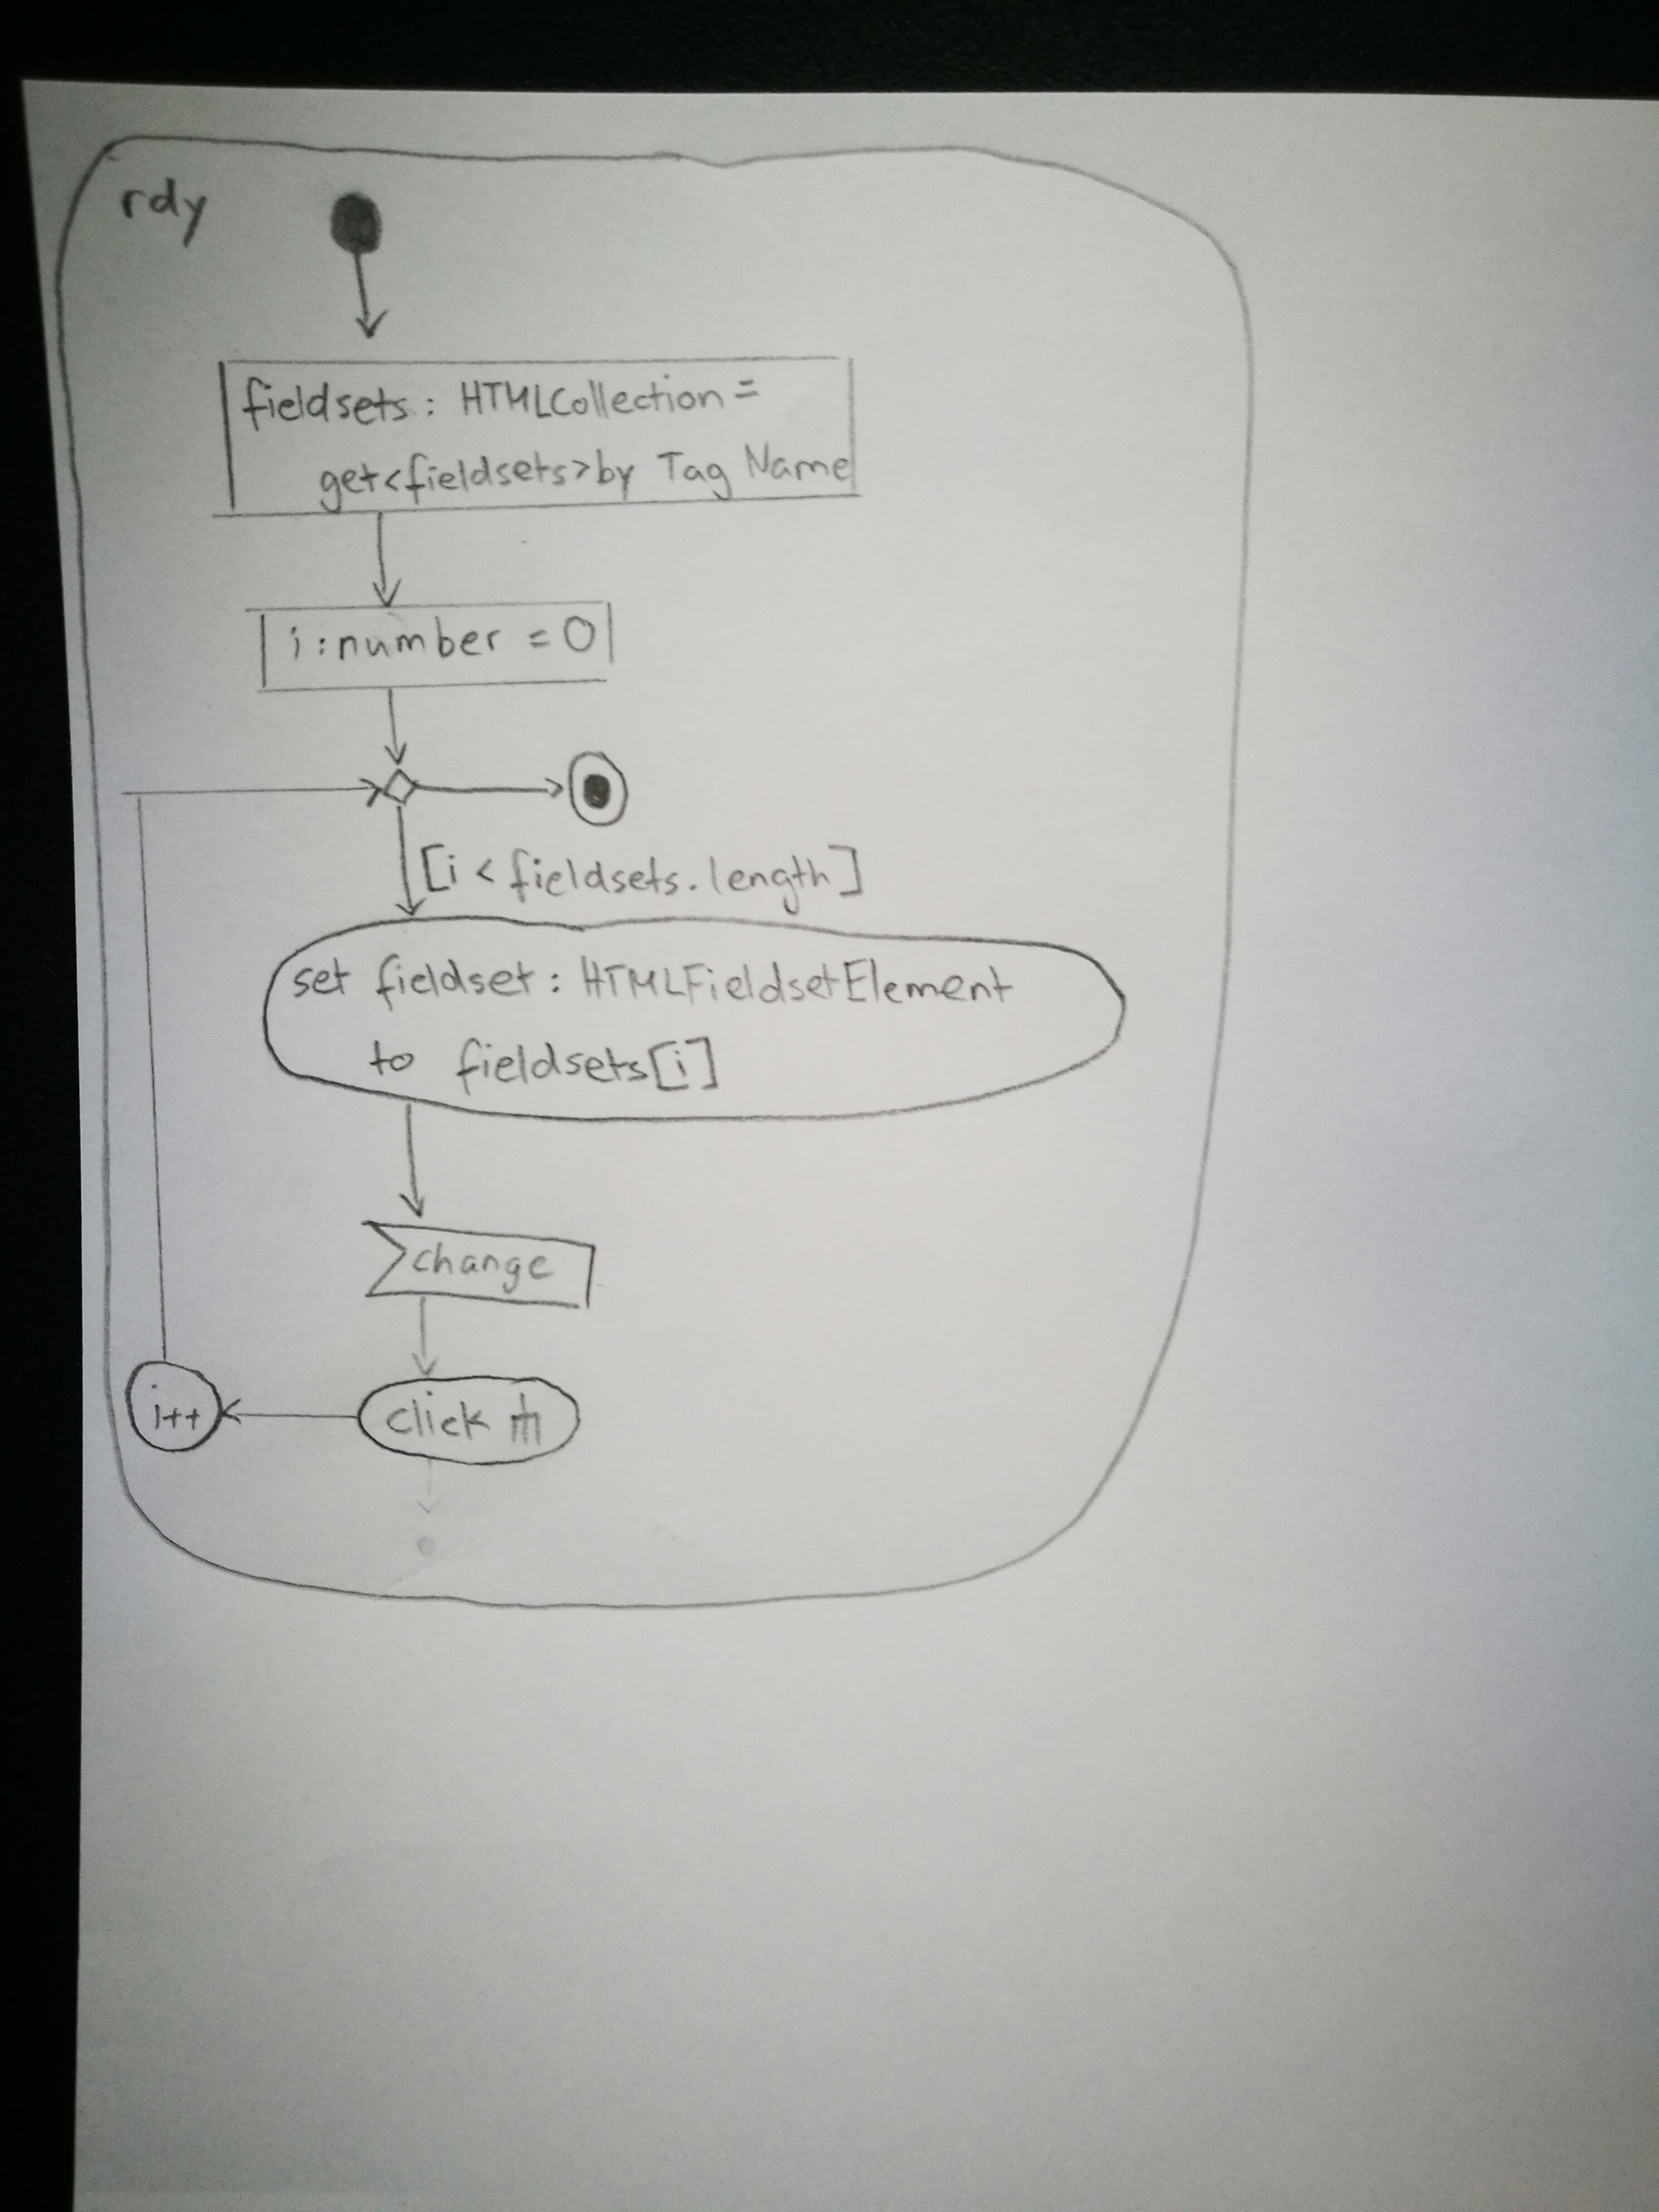 rdy
fieldsets: HTMLCollection =
get<fieldsets>by Tag Name
i:number = 0
[i < fieldsets.length]
set fieldset: HTMLFieldsetElement
to fieldsets[i]
change
i++
click